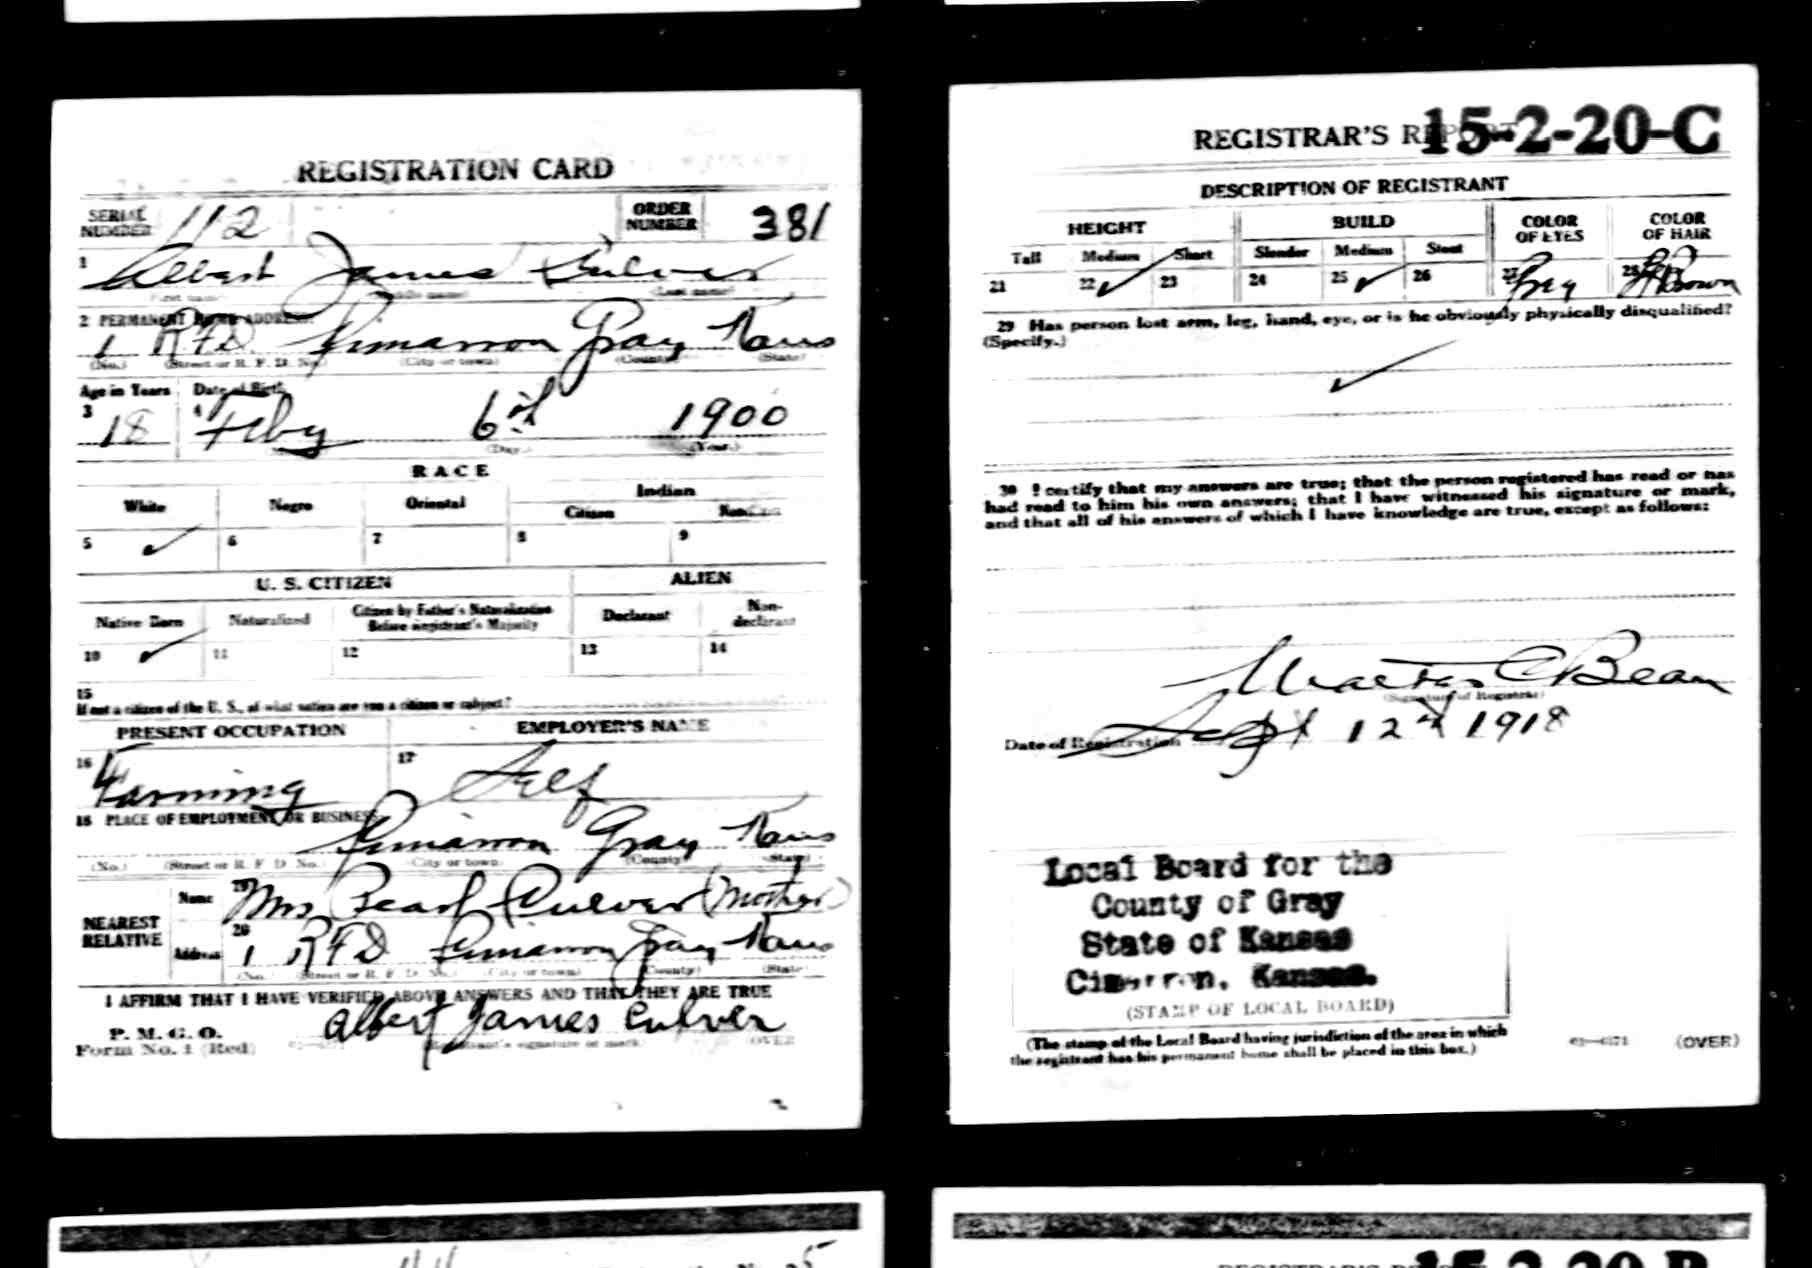 REGISTRATION CARD
SERIAL NUMBER 112 ORDER NUMBER 381
1 Albert James Culver
(First name) (Middle name) (Last name)
2 PERMANENT HOME ADDRESS:
1 RFD Cimarron Gray Kans
(No.) (Street or R. F. D. No.) (City or town) (County) (State)
Age in Years Date of Birth
3 18 4 Feby 6th 1900
(Day.) (Year.)
RACE
White Negro Oriental Indian
Citizen Noncitizen
5 ✓ 6 7 8 9
U. S. CITIZEN ALIEN
Native Born Naturalized Citizen by Father's Naturalization Before Registrant's Majority Declarant Non-declarant
10 ✓ 11 12 13 14
15
If not a citizen of the U. S., of what nation are you a citizen or subject?
PRESENT OCCUPATION EMPLOYER'S NAME
16 Farming 17 Self
18 PLACE OF EMPLOYMENT OR BUSINESS:
Cimarron Gray Kans
(No.) (Street or R. F. D. No.) (City or town) (County) (State)
NEAREST RELATIVE
Name 19 Mrs Pearl Culver (Mother)
Address 20 1 RFD Cimarron Gray Kans
(No.) (Street or R. F. D. No.) (City or town) (County) (State)
I AFFIRM THAT I HAVE VERIFIED ABOVE ANSWERS AND THAT THEY ARE TRUE
P. M. G. O.
Form No. 1 (Red) Albert James Culver
(Registrant's signature or mark) (OVER)
REGISTRAR'S REPORT 15-2-20-C
DESCRIPTION OF REGISTRANT
HEIGHT BUILD COLOR OF EYES COLOR OF HAIR
Tall Medium Short Slender Medium Stout
21 22 ✓ 23 24 25 ✓ 26 27 Grey 28 Brown
29 Has person lost arm, leg, hand, eye, or is he obviously physically disqualified?
(Specify.)
✓
30 I certify that my answers are true; that the person registered has read or has
had read to him his own answers; that I have witnessed his signature or mark,
and that all of his answers of which I have knowledge are true, except as follows:
Walter C Bean
(Signature of Registrar)
Date of Registration Sept 12th 1918
Local Board for the
County of Gray
State of Kansas
Cimarron, Kansas.
(STAMP OF LOCAL BOARD)
(The stamp of the Local Board having jurisdiction of the area in which
the registrant has his permanent home shall be placed in this box.)
(OVER)
REGISTRAR'S REPORT 15-2-20 B